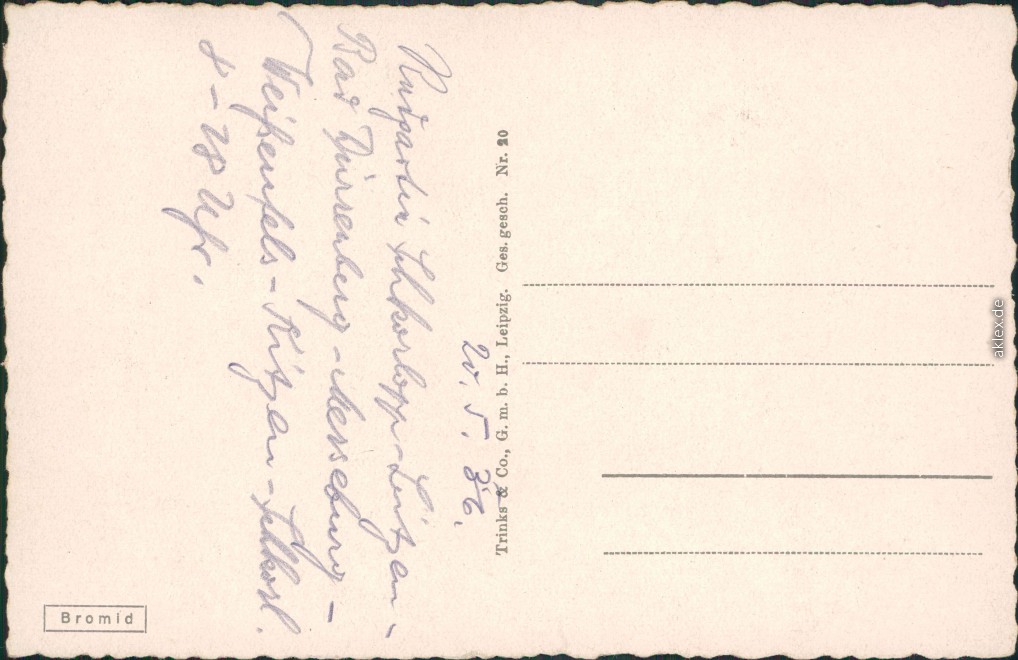 20. 5. 36.
Radpartie Schkorlopp - Lützen -
Bad Dürrenberg - Merseburg -
Weißenfels - Kitzen - Schkorl.
8 - 18 Uhr.
Trinks & Co., G. m. b. H., Leipzig. Ges. gesch. Nr. 20
Bromid
aklex.de